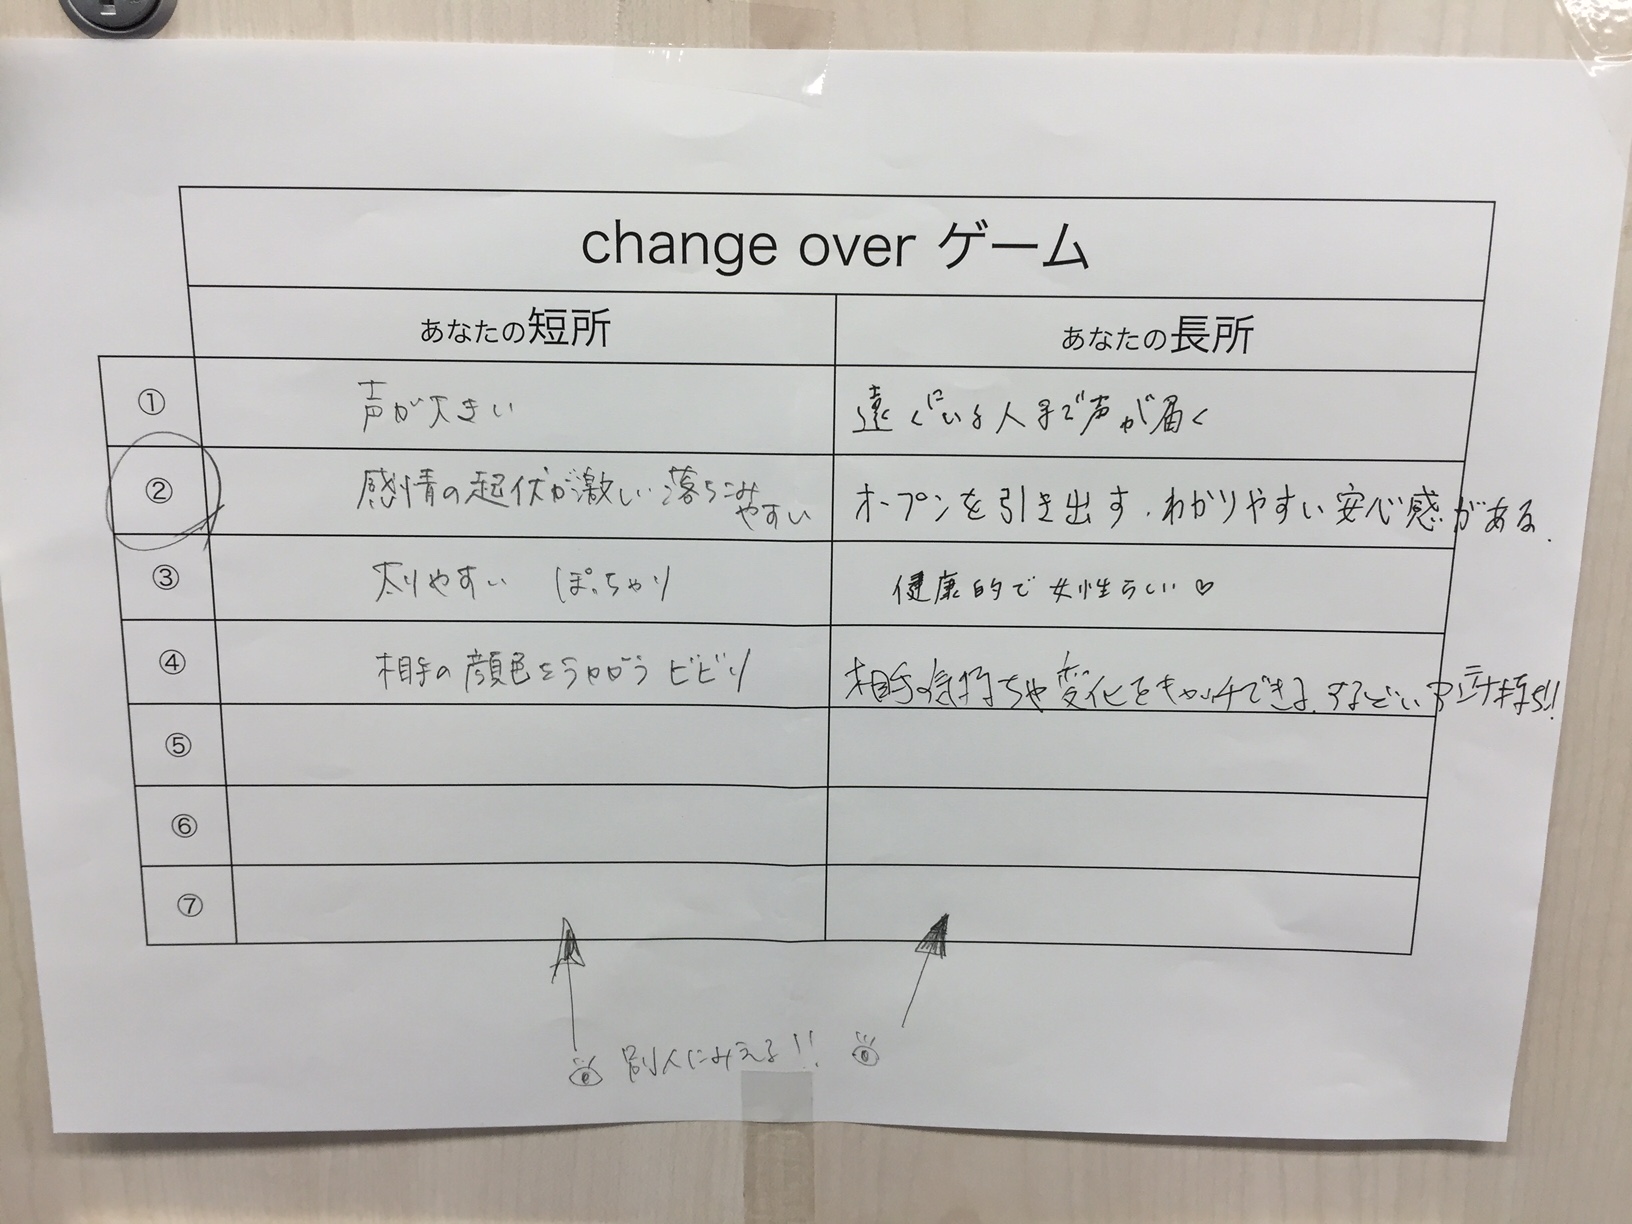 change over ゲーム
あなたの短所
あなたの長所
①
声が大きい
遠くにいる人まで声が届く
②
感情の起伏が激しい 落ちこみ
やすい
オープンを引き出す、わかりやすい安心感がある.
③
太りやすい ぽっちゃり
健康的で女性らしい♡
④
相手の顔色をうかがう ビビリ
相手の気持ちや変化をキャッチできる、するどい 持ち!!
⑤
⑥
⑦
別人にみえる!!